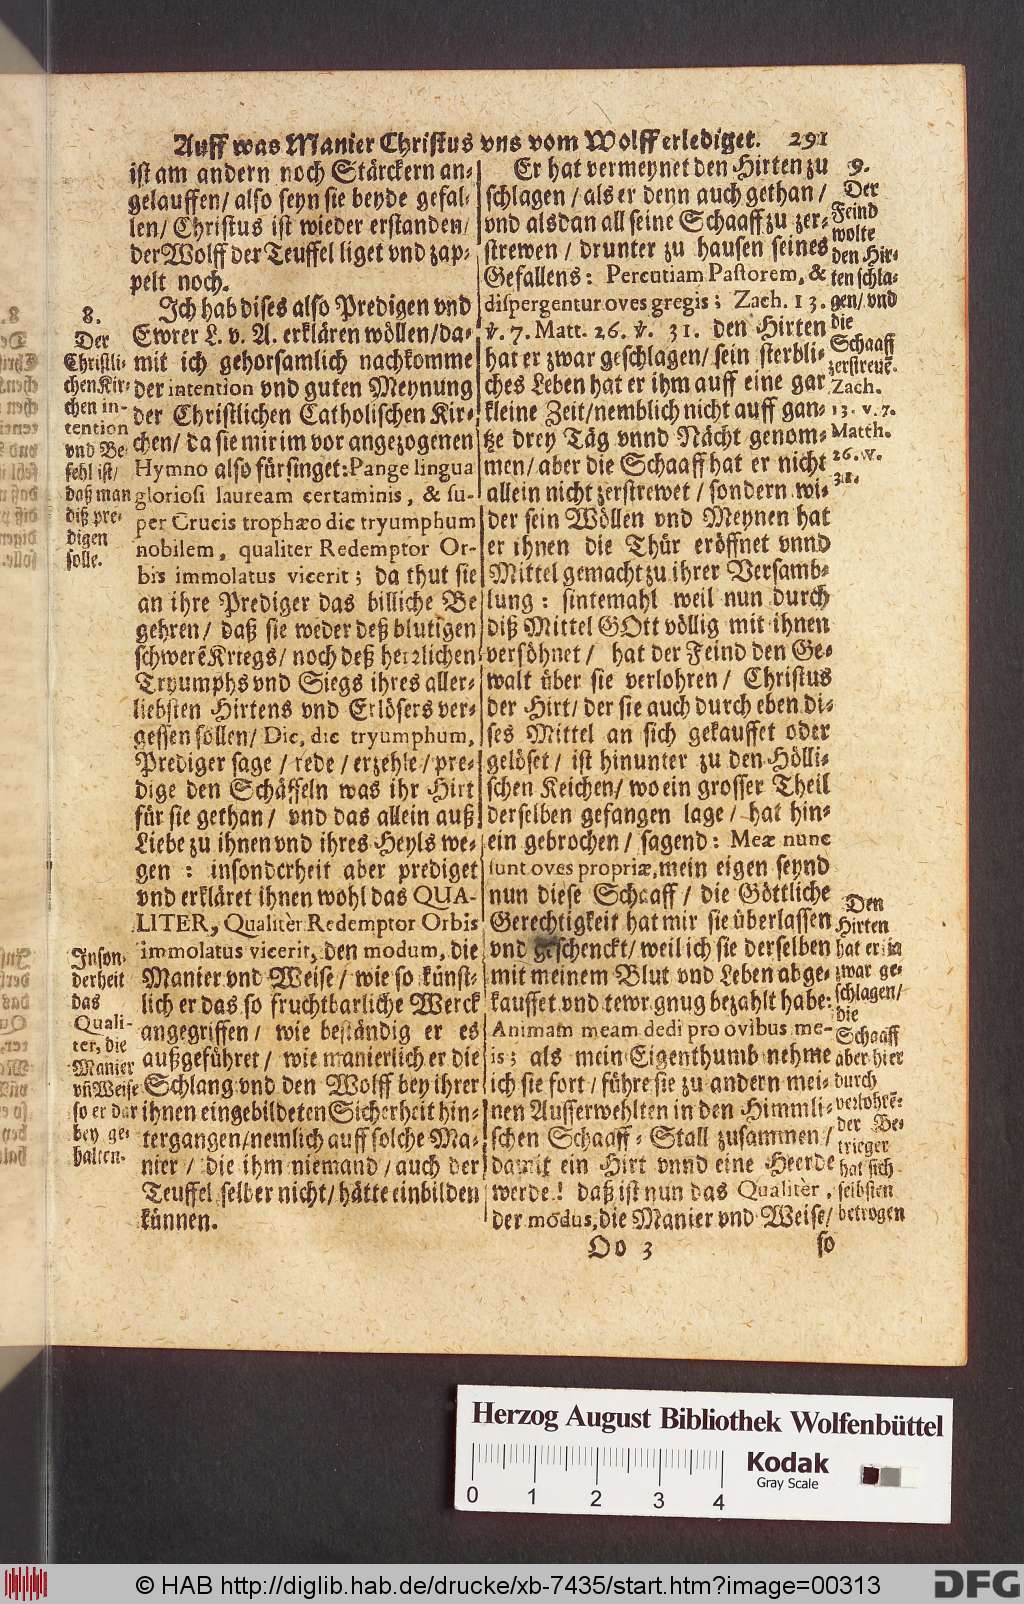 Auff was Manier Christus vns vom Wolff erlediget. 291
ist am andern noch Stärckern an-
gelauffen/ also seyn sie beyde gefal-
len/ Christus ist wieder erstanden/
der Wolff der Teuffel liget vnd zap-
pelt noch.
Ich hab dises also Predigen vnd
Ewrer L. v. A. erklären wöllen/ da-
mit ich gehorsamlich nachkomme
der intention vnd guten Meynung
der Christlichen Catholischen Kir-
chen/ da sie mir im vor angezogenen
Hymno also fürsinget: Pange lingua
gloriosi lauream certaminis, & su-
per Crucis trophæo dic tryumphum
nobilem, qualiter Redemptor Or-
bis immolatus vicerit; da thut sie
an ihre Prediger das billiche Be
gehren/ daß sie weder deß blutigen
schwerē Kriegs/ noch deß herrlichen
Tryumphs vnd Siegs ihres aller-
liebsten Hirtens vnd Erlösers ver-
gessen sollen/ Dic, dic tryumphum,
Prediger sage/ rede/ erzehle/ pre-
dige den Schäffeln was ihr Hirt
für sie gethan/ vnd das allein auß
Liebe zu ihnen vnd ihres Heyls we-
gen: insonderheit aber prediget
vnd erkläret ihnen wohl das QUA-
LITER, Qualitèr Redemptor Orbis
immolatus vicerit, den modum, die
Manier vnd Weise/ wie so künst-
lich er das so fruchtbarliche Werck
angegriffen/ wie beständig er es
außgeführet/ wie manierlich er die
Schlang vnd den Wolff bey ihrer
ihnen eingebildeten Sicherheit hin-
tergangen/ nemlich auff solche Ma-
nier/ die ihm niemand/ auch der
Teuffel selber nicht/ hätte einbilden
künnen.
8.
Der
Christli-
chen Kir-
chen in-
tention
vnd Be-
fehl ist/
daß man
diß pre-
digen
solle.
Inson-
derheit
das
Quali-
ter, die
Manier
vñ Weise
so er dar
bey ge-
halten.
Er hat vermeynet den Hirten zu
schlagen/ als er denn auch gethan/
vnd alsdan all seine Schaaff zu zer-
strewen/ drunter zu hausen seines
Gefallens: Percutiam Pastorem, &
dispergentur oves gregis; Zach. 13.
v. 7. Matt. 26. v. 31. den Hirten
hat er zwar geschlagen/ sein sterbli-
ches Leben hat er ihm auff eine gar
kleine Zeit/ nemblich nicht auff gan-
tze drey Täg vnnd Nächt genom-
men/ aber die Schaaff hat er nicht
allein nicht zerstrewet/ sondern wi-
der sein Wöllen vnd Meynen hat
er ihnen die Thür eröffnet vnnd
Mittel gemacht zu ihrer Versamb-
lung: sintemahl weil nun durch
diß Mittel GOtt völlig mit ihnen
versöhnet/ hat der Feind den Ge-
walt über sie verlohren/ Christus
der Hirt/ der sie auch durch eben di-
ses Mittel an sich gekauffet oder
gelöset/ ist hinunter zu den Hölli-
schen Keichen/ wo ein grosser Theil
derselben gefangen lage/ hat hin-
ein gebrochen/ sagend: Meæ nunc
sunt oves propriæ, mein eigen seynd
nun diese Schaaff/ die Göttliche
Gerechtigkeit hat mir sie überlassen
vnd geschenckt/ weil ich sie derselben
mit meinem Blut vnd Leben abge-
kauffet vnd tewr gnug bezahlt habe:
Animam meam dedi pro ovibus me-
is; als mein Eigenthumb nehme
ich sie fort/ führe sie zu andern mei-
nen Ausserwehlten in den Himmli-
schen Schaaff-Stall zusammen/
damit ein Hirt vnnd eine Heerde
werde! daß ist nun das Qualitèr,
der modus, die Manier vnd Weise/
9.
Der
Feind
wolte
den Hir-
ten schla-
gen/ vnd
die
Schaaff
zerstreuē.
Zach.
13. v. 7.
Matth.
26. v.
31.
Den
Hirten
hat er ja
zwar ge-
schlagen/
die
Schaaff
aber hier
durch
verlohrē:
der Be-
trieger
hat sich
selbsten
betrogen
Oo 3
so
Herzog August Bibliothek Wolfenbüttel
Kodak
Gray Scale
0 1 2 3 4
© HAB http://diglib.hab.de/drucke/xb-7435/start.htm?image=00313
DFG